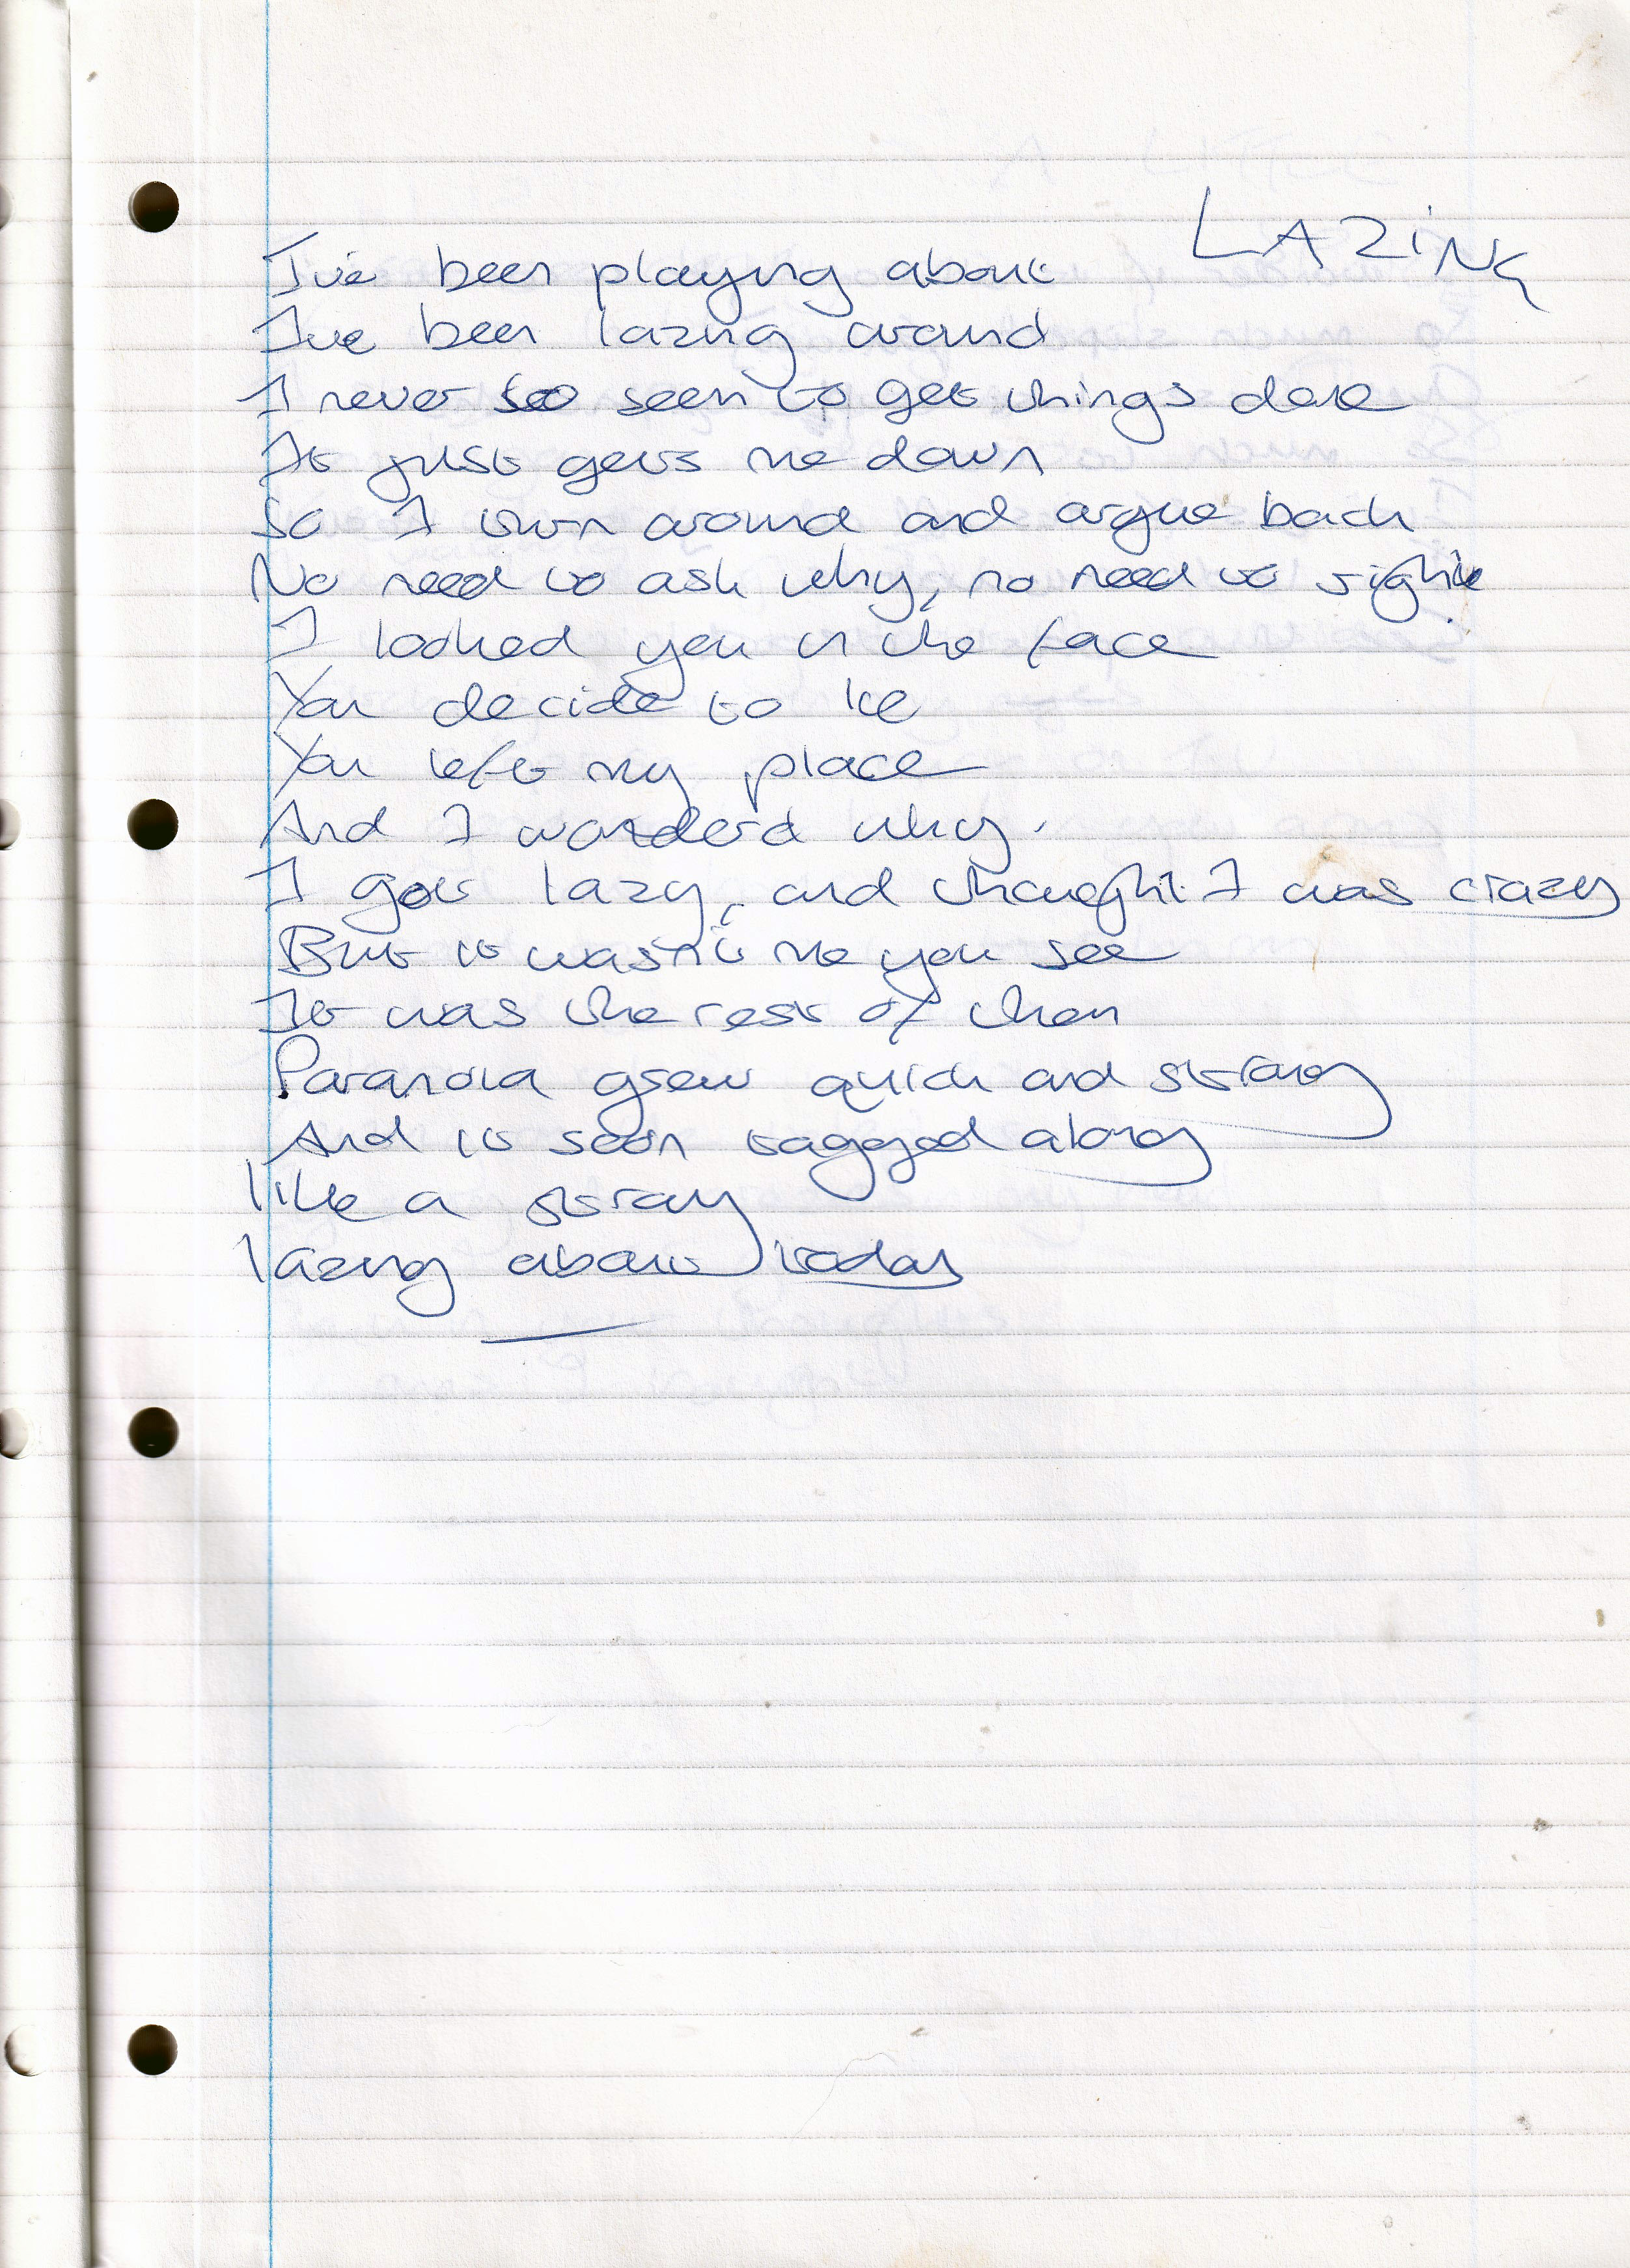 LAZING
I've been playing about
I've been lazing around
I never seem to get things done
It just gets me down
So I turn around and argue back
No need to ask why, no need to
I looked you in the face
You decide to lie
You left my place
And I wonderd why.
I got lazy, and thought I was crazy
But it wasn't me you see
It was the rest of them
Paranoia grew quick and strong
And it soon tagged along
like a stray
lazing about today